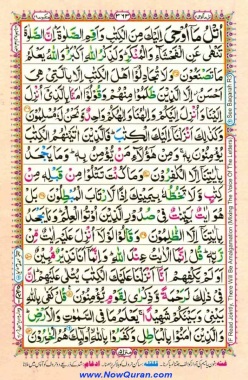 ٣٩٣
اُتْلُ مَاۤ اُوْحِیَ اِلَیْكَ مِنَ الْكِتٰبِ وَاَقِمِ الصَّلٰوةَ ؕ اِنَّ الصَّلٰوةَ
تَنْهٰی عَنِ الْفَحْشَآءِ وَالْمُنْكَرِ ؕ وَلَذِكْرُ اللّٰهِ اَكْبَرُ ؕ وَاللّٰهُ یَعْلَمُ
مَا تَصْنَعُوْنَ ۝ وَلَا تُجَادِلُوْۤا اَهْلَ الْكِتٰبِ اِلَّا بِالَّتِیْ هِیَ
اَحْسَنُ ۖ اِلَّا الَّذِیْنَ ظَلَمُوْا مِنْهُمْ وَقُوْلُوْۤا اٰمَنَّا بِالَّذِیْۤ اُنْزِلَ
اِلَیْنَا وَاُنْزِلَ اِلَیْكُمْ وَاِلٰهُنَا وَاِلٰهُكُمْ وَاحِدٌ وَّنَحْنُ لَهٗ مُسْلِمُوْنَ ۝
وَكَذٰلِكَ اَنْزَلْنَاۤ اِلَیْكَ الْكِتٰبَ ؕ فَالَّذِیْنَ اٰتَیْنٰهُمُ الْكِتٰبَ
یُؤْمِنُوْنَ بِهٖ ۚ وَمِنْ هٰۤؤُلَآءِ مَنْ یُّؤْمِنُ بِهٖ ؕ وَمَا یَجْحَدُ
بِاٰیٰتِنَاۤ اِلَّا الْكٰفِرُوْنَ ۝ وَمَا كُنْتَ تَتْلُوْا مِنْ قَبْلِهٖ مِنْ
كِتٰبٍ وَّلَا تَخُطُّهٗ بِیَمِیْنِكَ اِذًا لَّارْتَابَ الْمُبْطِلُوْنَ ۝ بَلْ
هُوَ اٰیٰتٌۢ بَیِّنٰتٌ فِیْ صُدُوْرِ الَّذِیْنَ اُوْتُوا الْعِلْمَ ؕ وَمَا یَجْحَدُ
بِاٰیٰتِنَاۤ اِلَّا الظّٰلِمُوْنَ ۝ وَقَالُوْا لَوْلَاۤ اُنْزِلَ عَلَیْهِ اٰیٰتٌ مِّنْ
رَّبِّهٖ ؕ قُلْ اِنَّمَا الْاٰیٰتُ عِنْدَ اللّٰهِ ؕ وَاِنَّمَاۤ اَنَا نَذِیْرٌ مُّبِیْنٌ ۝
اَوَلَمْ یَكْفِهِمْ اَنَّاۤ اَنْزَلْنَا عَلَیْكَ الْكِتٰبَ یُتْلٰی عَلَیْهِمْ ؕ اِنَّ
فِیْ ذٰلِكَ لَرَحْمَةً وَّذِكْرٰی لِقَوْمٍ یُّؤْمِنُوْنَ ۝ قُلْ كَفٰی بِاللّٰهِ
بَیْنِیْ وَبَیْنَكُمْ شَهِیْدًا ۚ یَعْلَمُ مَا فِی السَّمٰوٰتِ وَالْاَرْضِ ؕ
وَالَّذِیْنَ اٰمَنُوْا بِالْبَاطِلِ وَكَفَرُوْا بِاللّٰهِ ۙ اُولٰٓئِكَ هُمُ الْخٰسِرُوْنَ ۝
See Baqarah R3
Read Jaent, There Will Be Amalgamation (Mixing The Voice Of The Letters)
www.NowQuran.com